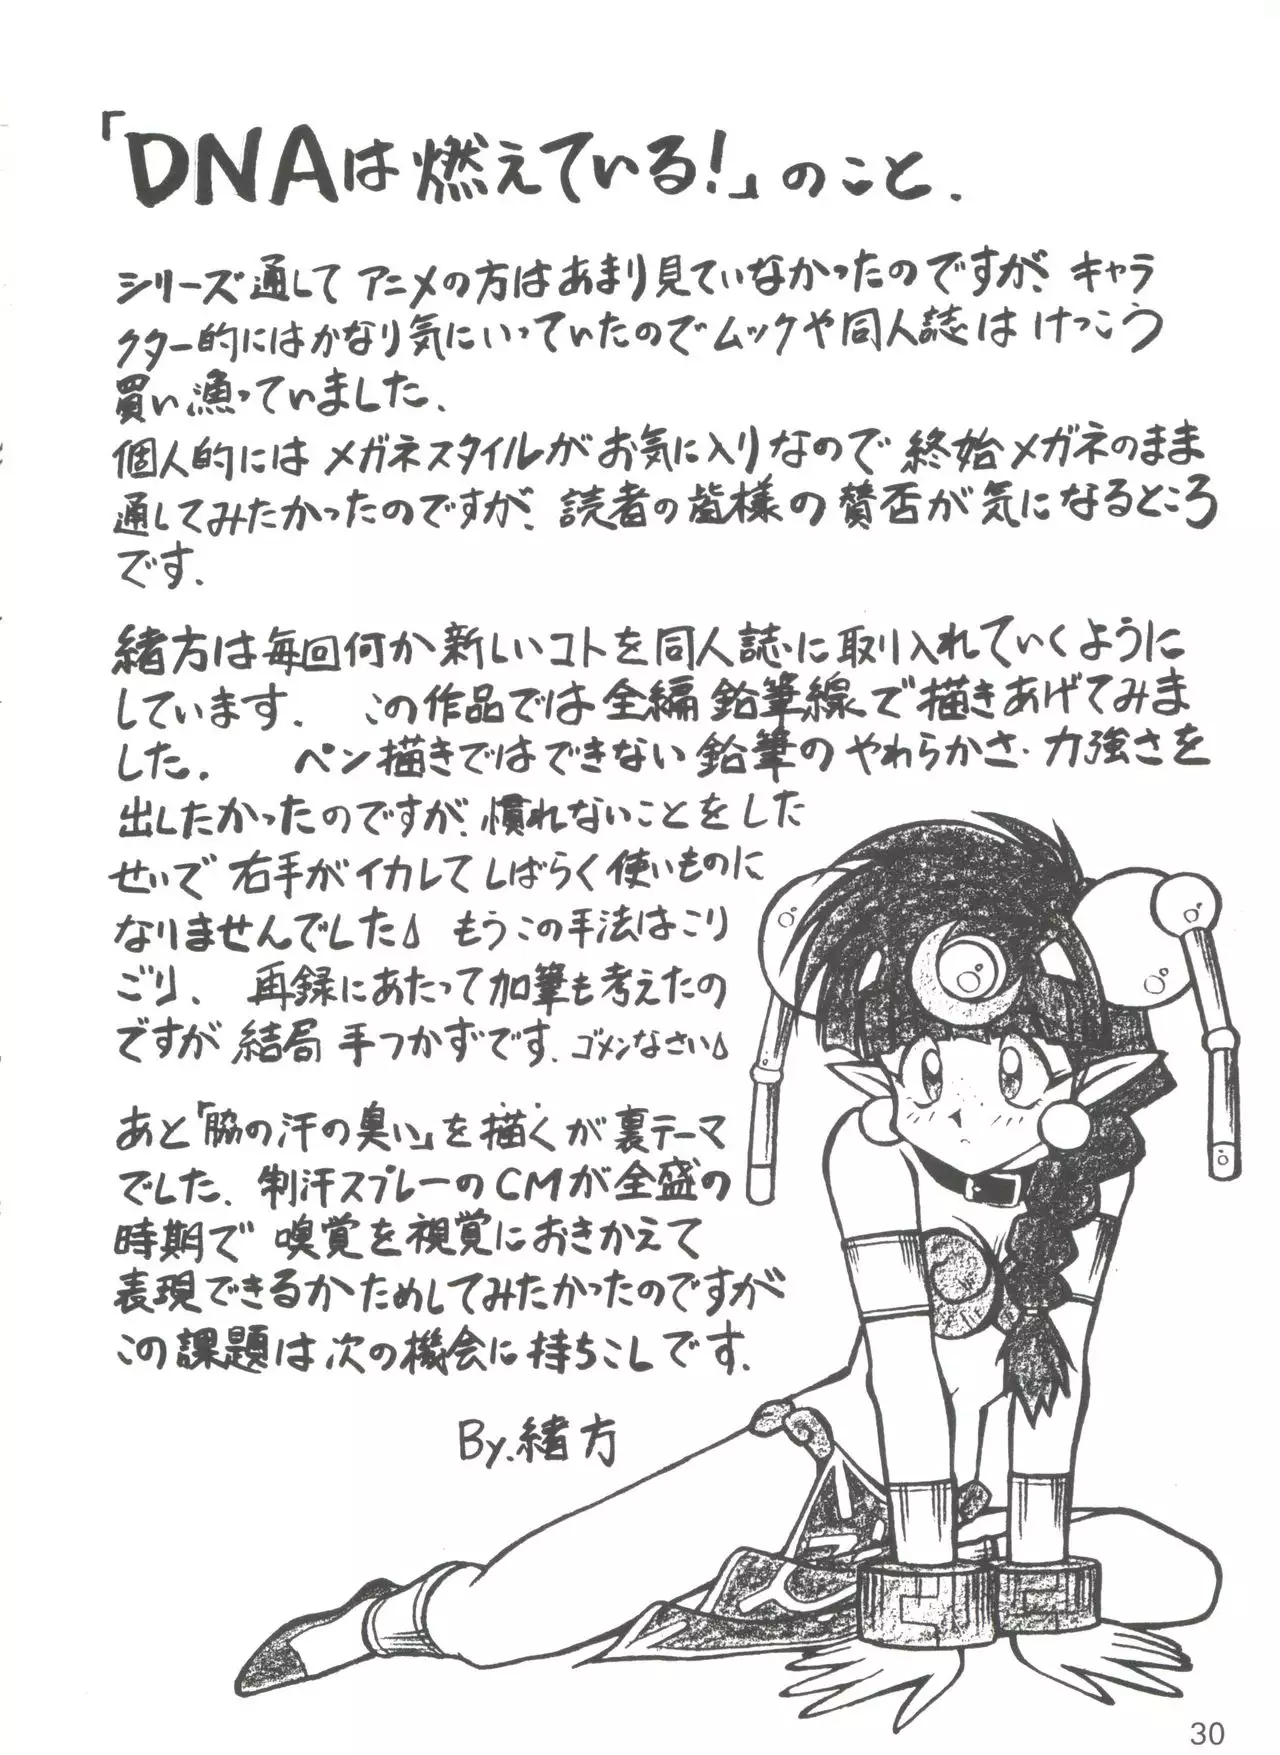 「DNAは燃えている!」のこと.
シリーズ通して アニメの方はあまり見ていなかったのですが、キャラ
クター的にはかなり気にいっていたのでムックや同人誌は けっこう
買い漁っていました.
個人的にはメガネスタイルがお気に入りなので 終始メガネのまま
通してみたかったのですが、読者の皆様の賛否が気になるところ
です.
緒方は毎回何か新しいコトを同人誌に取り入れていくように
しています. この作品では全編 鉛筆線で描きあげてみま
した. ペン描きではできない鉛筆のやわらかさ・力強さを
出したかったのですが、慣れないことをした
せいで 右手がイカレてしばらく使いものに
なりませんでした もうこの手法はこり
ごり、 再録にあたって加筆も考えたの
ですが 結局 手つかずです. ゴメンなさい
あと「脇の汗の臭い」を描くが裏テーマ
でした. 制汗スプレーのCMが全盛の
時期で 嗅覚を視覚におきかえて
表現できるかためしてみたかったのですが
この課題は次の機会に持ちこしです.
By.緒方
30